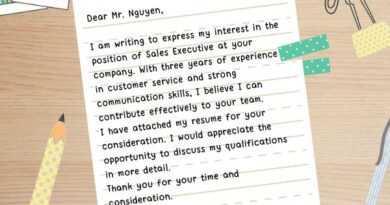 Dear Mr. Nguyen,
I am writing to express my interest in the
position of Sales Executive at your
company. With three years of experience
in customer service and strong
communication skills, I believe I can
contribute effectively to your team.
I have attached my resume for your
consideration. I would appreciate the
opportunity to discuss my qualifications
in more detail.
Thank you for your time and
consideration.